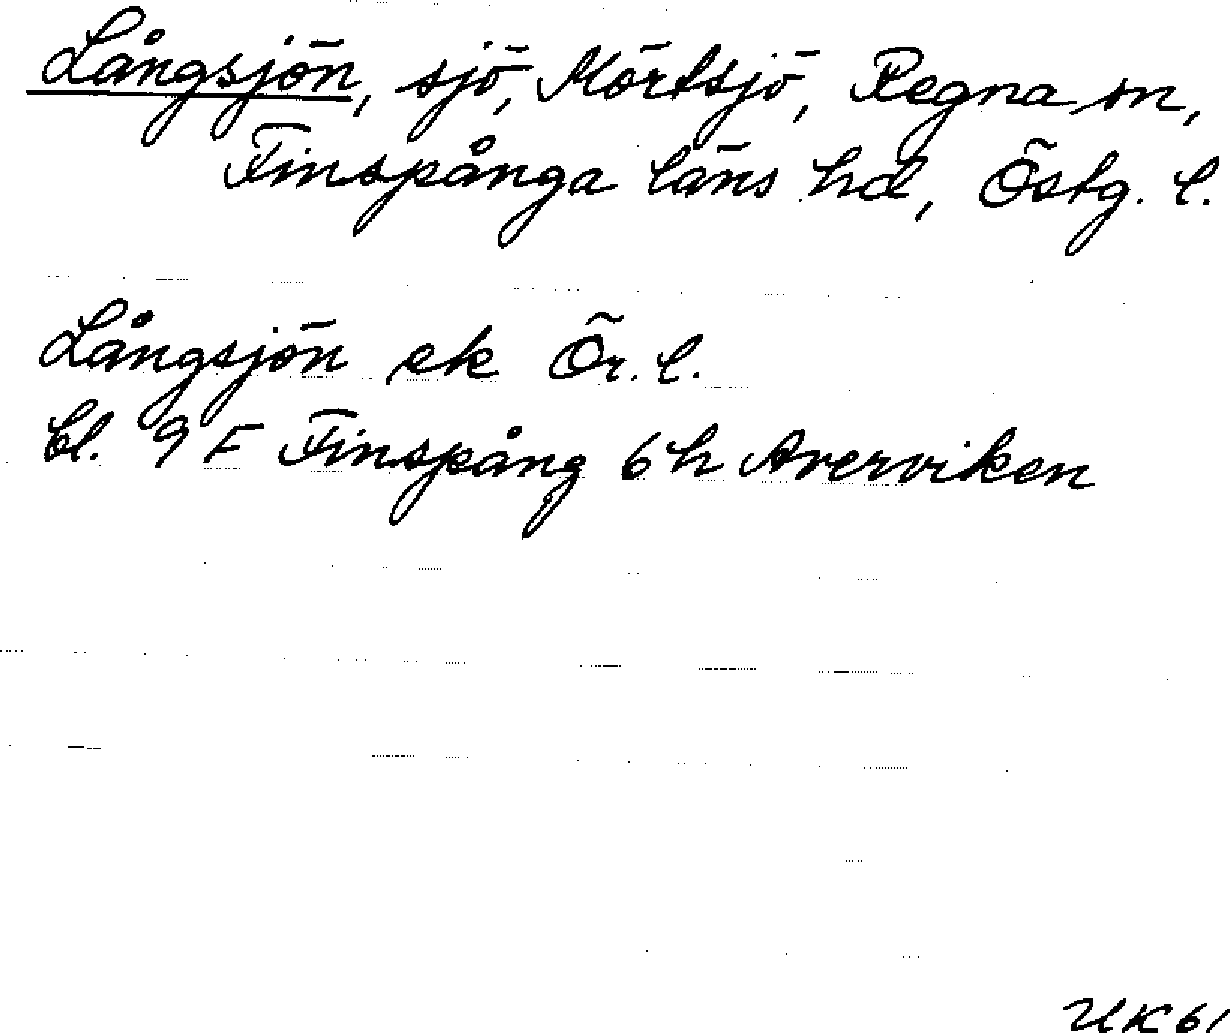 Långsjön, sjö, Mörtsjö, Regna sn,
Finspånga läns hd, Östg. l.
Långsjön ek Ör. l.
bl. 9 F Finspång 6 h Averviken
UK 61